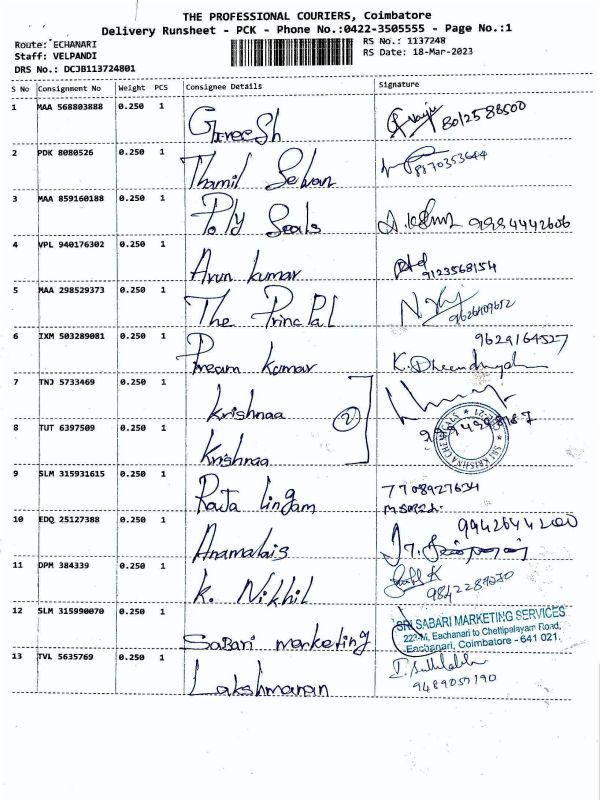 THE PROFESSIONAL COURIERS, Coimbatore
Delivery Runsheet - PCK - Phone No.:0422-3505555 - Page No.:1
Route: ECHANARI
Staff: VELPANDI
DRS No.: DCJB113724801
RS No.: 1137248
RS Date: 18-Mar-2023
S No Consignment No Weight PCS Consignee Details Signature
1 MAA 568803888 0.250 1 Gireesh 8012588500
2 PDK 8080526 0.250 1 Thamil Selvan 8870353644
3 MAA 859160188 0.250 1 Poly Seals 9994442606
4 VPL 940176302 0.250 1 Arun kumar 9123568154
5 MAA 298529373 0.250 1 The PrincPal
6 IXM 503289081 0.250 1 Pream kumar 9629164527
7 TNJ 5733469 0.250 1 Krishnaa
2
8 TUT 6397509 0.250 1 Krishnaa
SRI KRISHNA CHEMICALS
9 SLM 315931615 0.250 1 Lingam 7708927634
10 EDQ 25127388 0.250 1 Anamalais 9942644200
11 DPM 384339 0.250 1 K. Nikhil 9842287230
12 SLM 315990070 0.250 1 Sabari marketing
SRI SABARI MARKETING SERVICES
223-M, Eachanari to Chettipalayam Road,
Eachanari, Coimbatore - 641 021.
13 TVL 5635769 0.250 1 Lakshmanan 9489057190